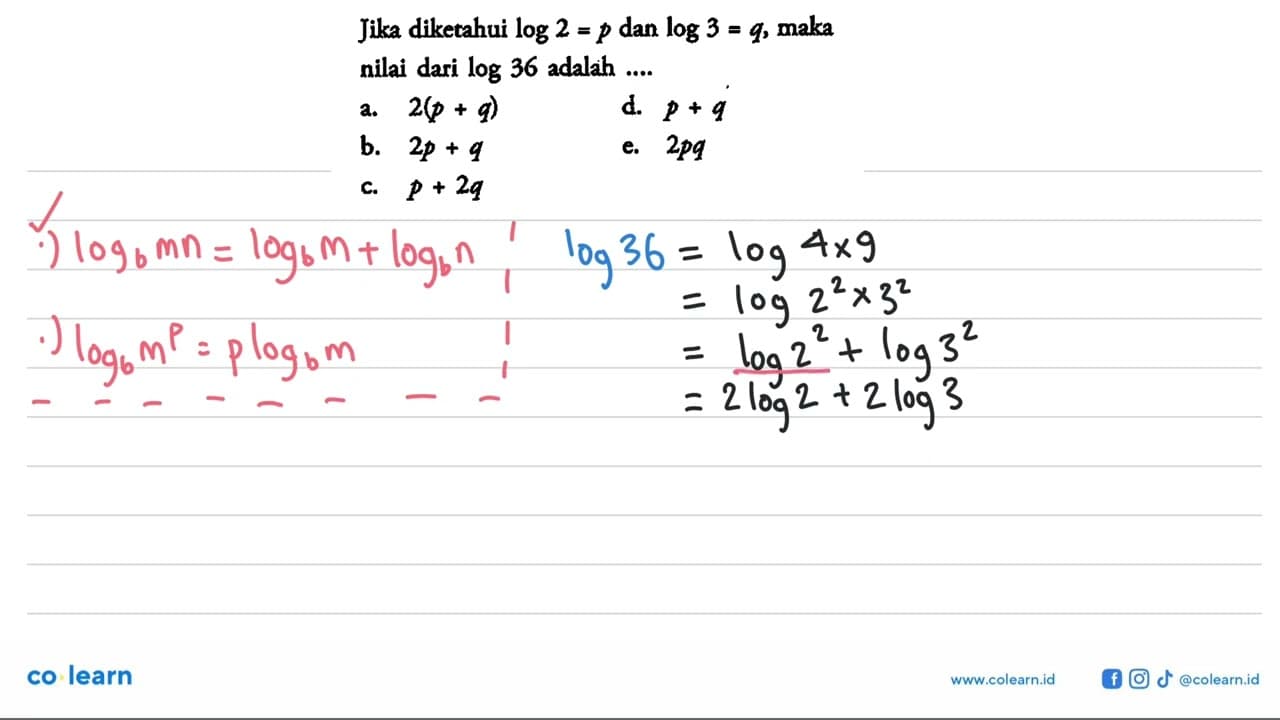 Jika diketahui log 2 = p dan log 3 = q, maka
nilai dari log 36 adalah ....
a. 2(p + q)
b. 2p + q
c. p + 2q
d. p + q
e. 2pq
✓
·) log_b mn = log_b m + log_b n
·) log_b m^p = p log_b m
log 36 = log 4 × 9
= log 2² × 3²
= log 2² + log 3²
= 2 log 2 + 2 log 3
co·learn
www.colearn.id
@colearn.id